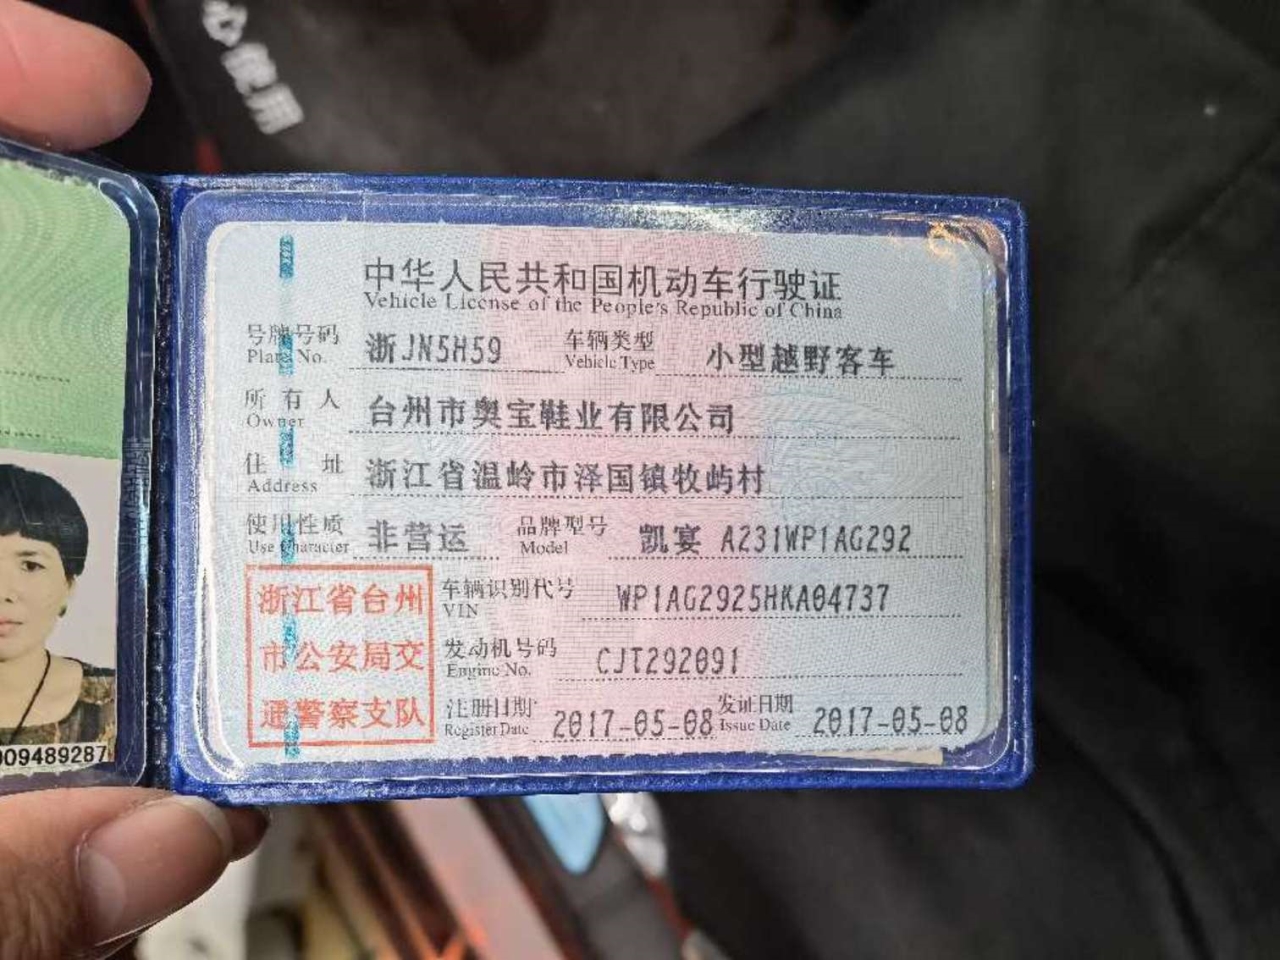 心使用
中华人民共和国机动车行驶证
Vehicle License of the People's Republic of China
号牌号码 浙JN5H59 车辆类型 小型越野客车
Plate No. Vehicle Type
所有人 台州市奥宝鞋业有限公司
Owner
住址 浙江省温岭市泽国镇牧屿村
Address
使用性质 非营运 品牌型号 凯宴 A231WP1AG292
Use Character Model
浙江省台州
市公安局交
通警察支队
车辆识别代号 WP1AG2925HKA04737
VIN
发动机号码 CJT292091
Engine No.
注册日期 2017-05-08 发证日期 2017-05-08
Register Date Issue Date
009489287